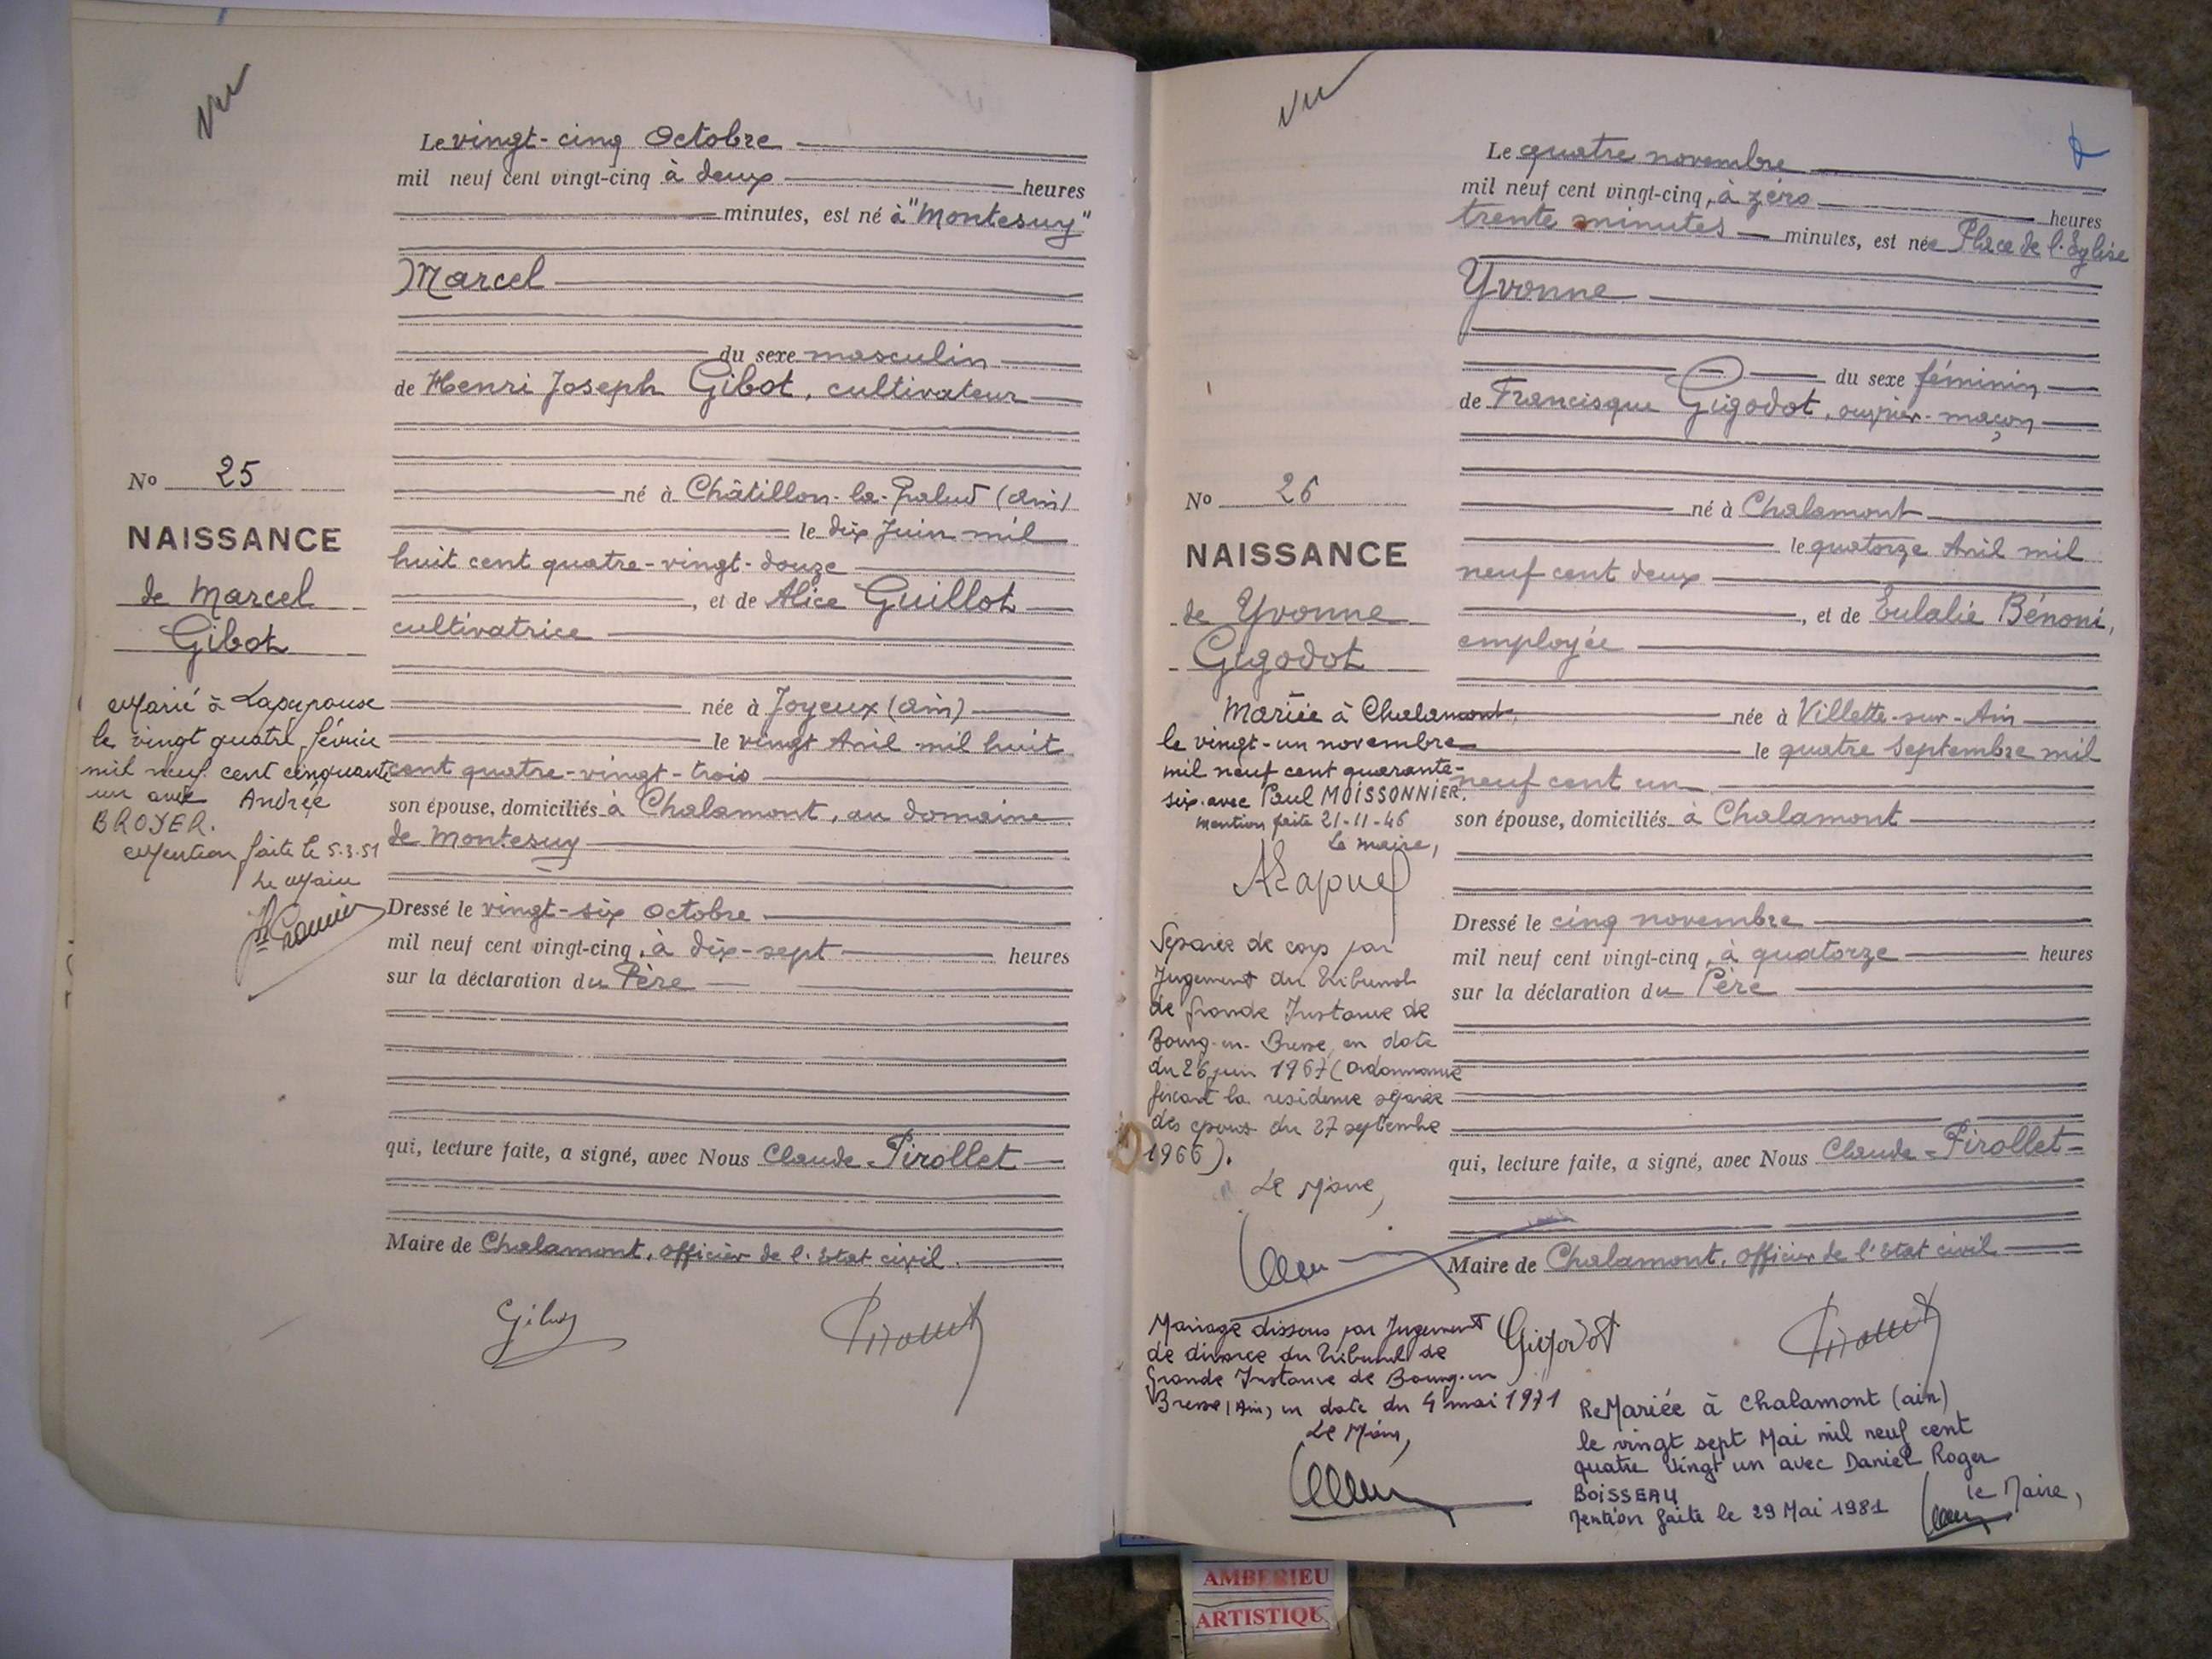 Vu
Le vingt-cinq Octobre
mil neuf cent vingt-cinq à deux heures
minutes, est né à "Montesuy"
Marcel
du sexe masculin
de Henri Joseph Gibot, cultivateur
né à Châtillon-la-Palud (Ain)
le dix Juin mil
huit cent quatre-vingt-douze
, et de Alice Guillot
cultivatrice
née à Joyeux (Ain)
le vingt Avril mil huit
cent quatre-vingt-trois
son épouse, domiciliés à Chalamont, au domaine
de Montesuy
Dressé le vingt-six Octobre
mil neuf cent vingt-cinq, à dix-sept heures
sur la déclaration du Père
qui, lecture faite, a signé, avec Nous Claude Pirollet
Maire de Chalamont, officier de l'Etat civil.
Gibot
No 25
NAISSANCE
de Marcel
Gibot
Marié à Lapeyrouse
le vingt quatre février
mil neuf cent cinquante
un avec Andrée
BROYER.
Mention faite le 5.3.51
Le Maire
Vu
Le quatre novembre
mil neuf cent vingt-cinq, à zéro heures
trente minutes minutes, est née Place de l'Eglise
Yvonne
du sexe féminin
de Francisque Gigodot, ouvrier-maçon
né à Chalamont
le quatorze Avril mil
neuf cent deux
, et de Eulalie Bénoni,
employée
née à Villette-sur-Ain
le quatre Septembre mil
neuf cent un
son épouse, domiciliés à Chalamont
Dressé le cinq novembre
mil neuf cent vingt-cinq, à quatorze heures
sur la déclaration du Père
qui, lecture faite, a signé, avec Nous Claude Pirollet
Maire de Chalamont, officier de l'Etat civil
Gigodot
No 26
NAISSANCE
de Yvonne
Gigodot
Mariée à Chalamont,
le vingt-un novembre
mil neuf cent quarante-
six avec Paul MOISSONNIER.
Mention faite 21-11-46
Le maire,
Séparée de corps par
Jugement du Tribunal
de Grande Instance de
Bourg-en-Bresse en date
du 26 juin 1967 (Ordonnance
fixant la résidence séparée
des époux du 27 septembre
1966).
Le Maire,
Mariage dissous par Jugement
de divorce du Tribunal de
Grande Instance de Bourg-en
Bresse (Ain) en date du 4 mai 1971
Le Maire,
ReMariée à Chalamont (ain)
le vingt sept Mai mil neuf cent
quatre vingt un avec Daniel Roger
BOISSEAU
Mention faite le 29 Mai 1981
le Maire,
AMBERIEU
ARTISTIQU